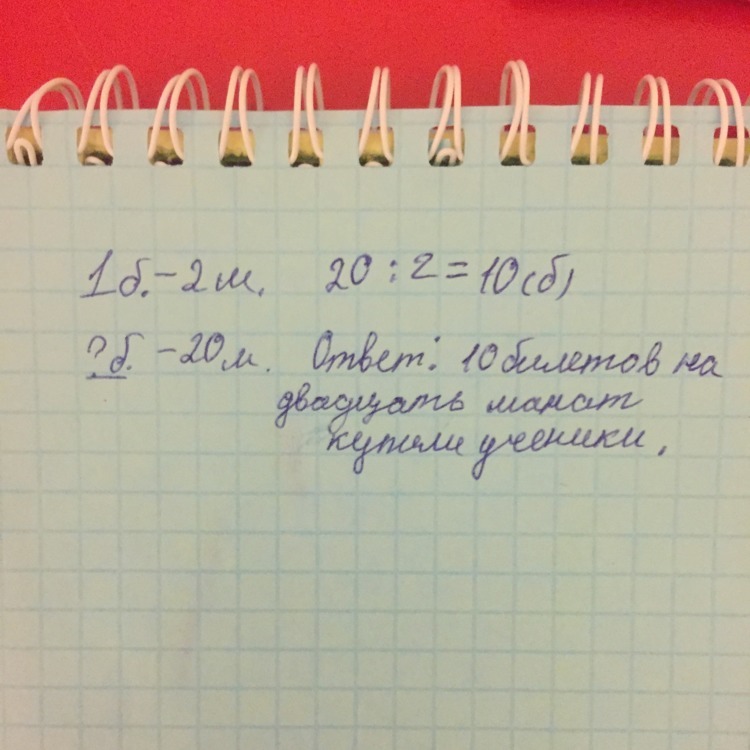 1б. – 2м. 20 : 2 = 10 (б)
?б. – 20м. Ответ: 10 билетов на
двадцать манат
купили ученики.